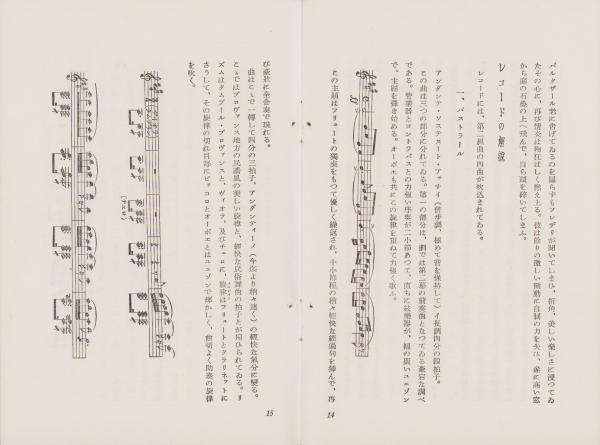 バルタザール老に告げてゐるのを図らずもフレデリが聞いてしまひ、折角、美しい楽しさに浸つてゐ
たその心に、再び情炎は狗狂はしく燃え上る。彼は余りの激しい衝動に自制の力を失ひ、遂に高い窓
から庭の石畳の上へ飛んで、自ら頭を砕いてしまふ。
レコードの解説
レコードには、第二組曲の四曲が吹込まれてゐる。
一、パストラール
アンダンテ・ソステヌート・アッサイ(併歩調、極めて音を保持して)イ長調四分の四拍子。
この曲は三つの部分に分れてゐる。第一の部分は、劇では第二幕の前奏曲となつてゐる豪宕な調べ
である。管楽器とコントラバスとの力強い序奏が二小節あつて、直ちに絃楽器が、幅の広いユニゾン
で、主題を弾き始める。オーボエも共にこの旋律を重ねて力強く歌ふ。
この主題はフリュートの独奏をもつて優しく繰返され、十小節程の稍々軽快な経過句を挿んで、再
14
び豪壮に全合奏で現れる。
曲はこゝで一転して四分の三拍子、アンダンティーノ(今迄より稍々速く)の軽快な気分に変る。
こゝではプロヴァンス地方の民謡風の美しい旋律と、軽快な民俗舞曲の拍子とが用ひられてゐる。リ
ズムはタムブール・プロヴァンスと、ヴィオラ、及びチェロに、旋律はフリュートとクラリネットに
さうして、その旋律の切れ目毎にピッコロとオーボエとはユニゾンで輝かしく、歯切よく助奏の旋律
を吹く。
(チェロ)
15